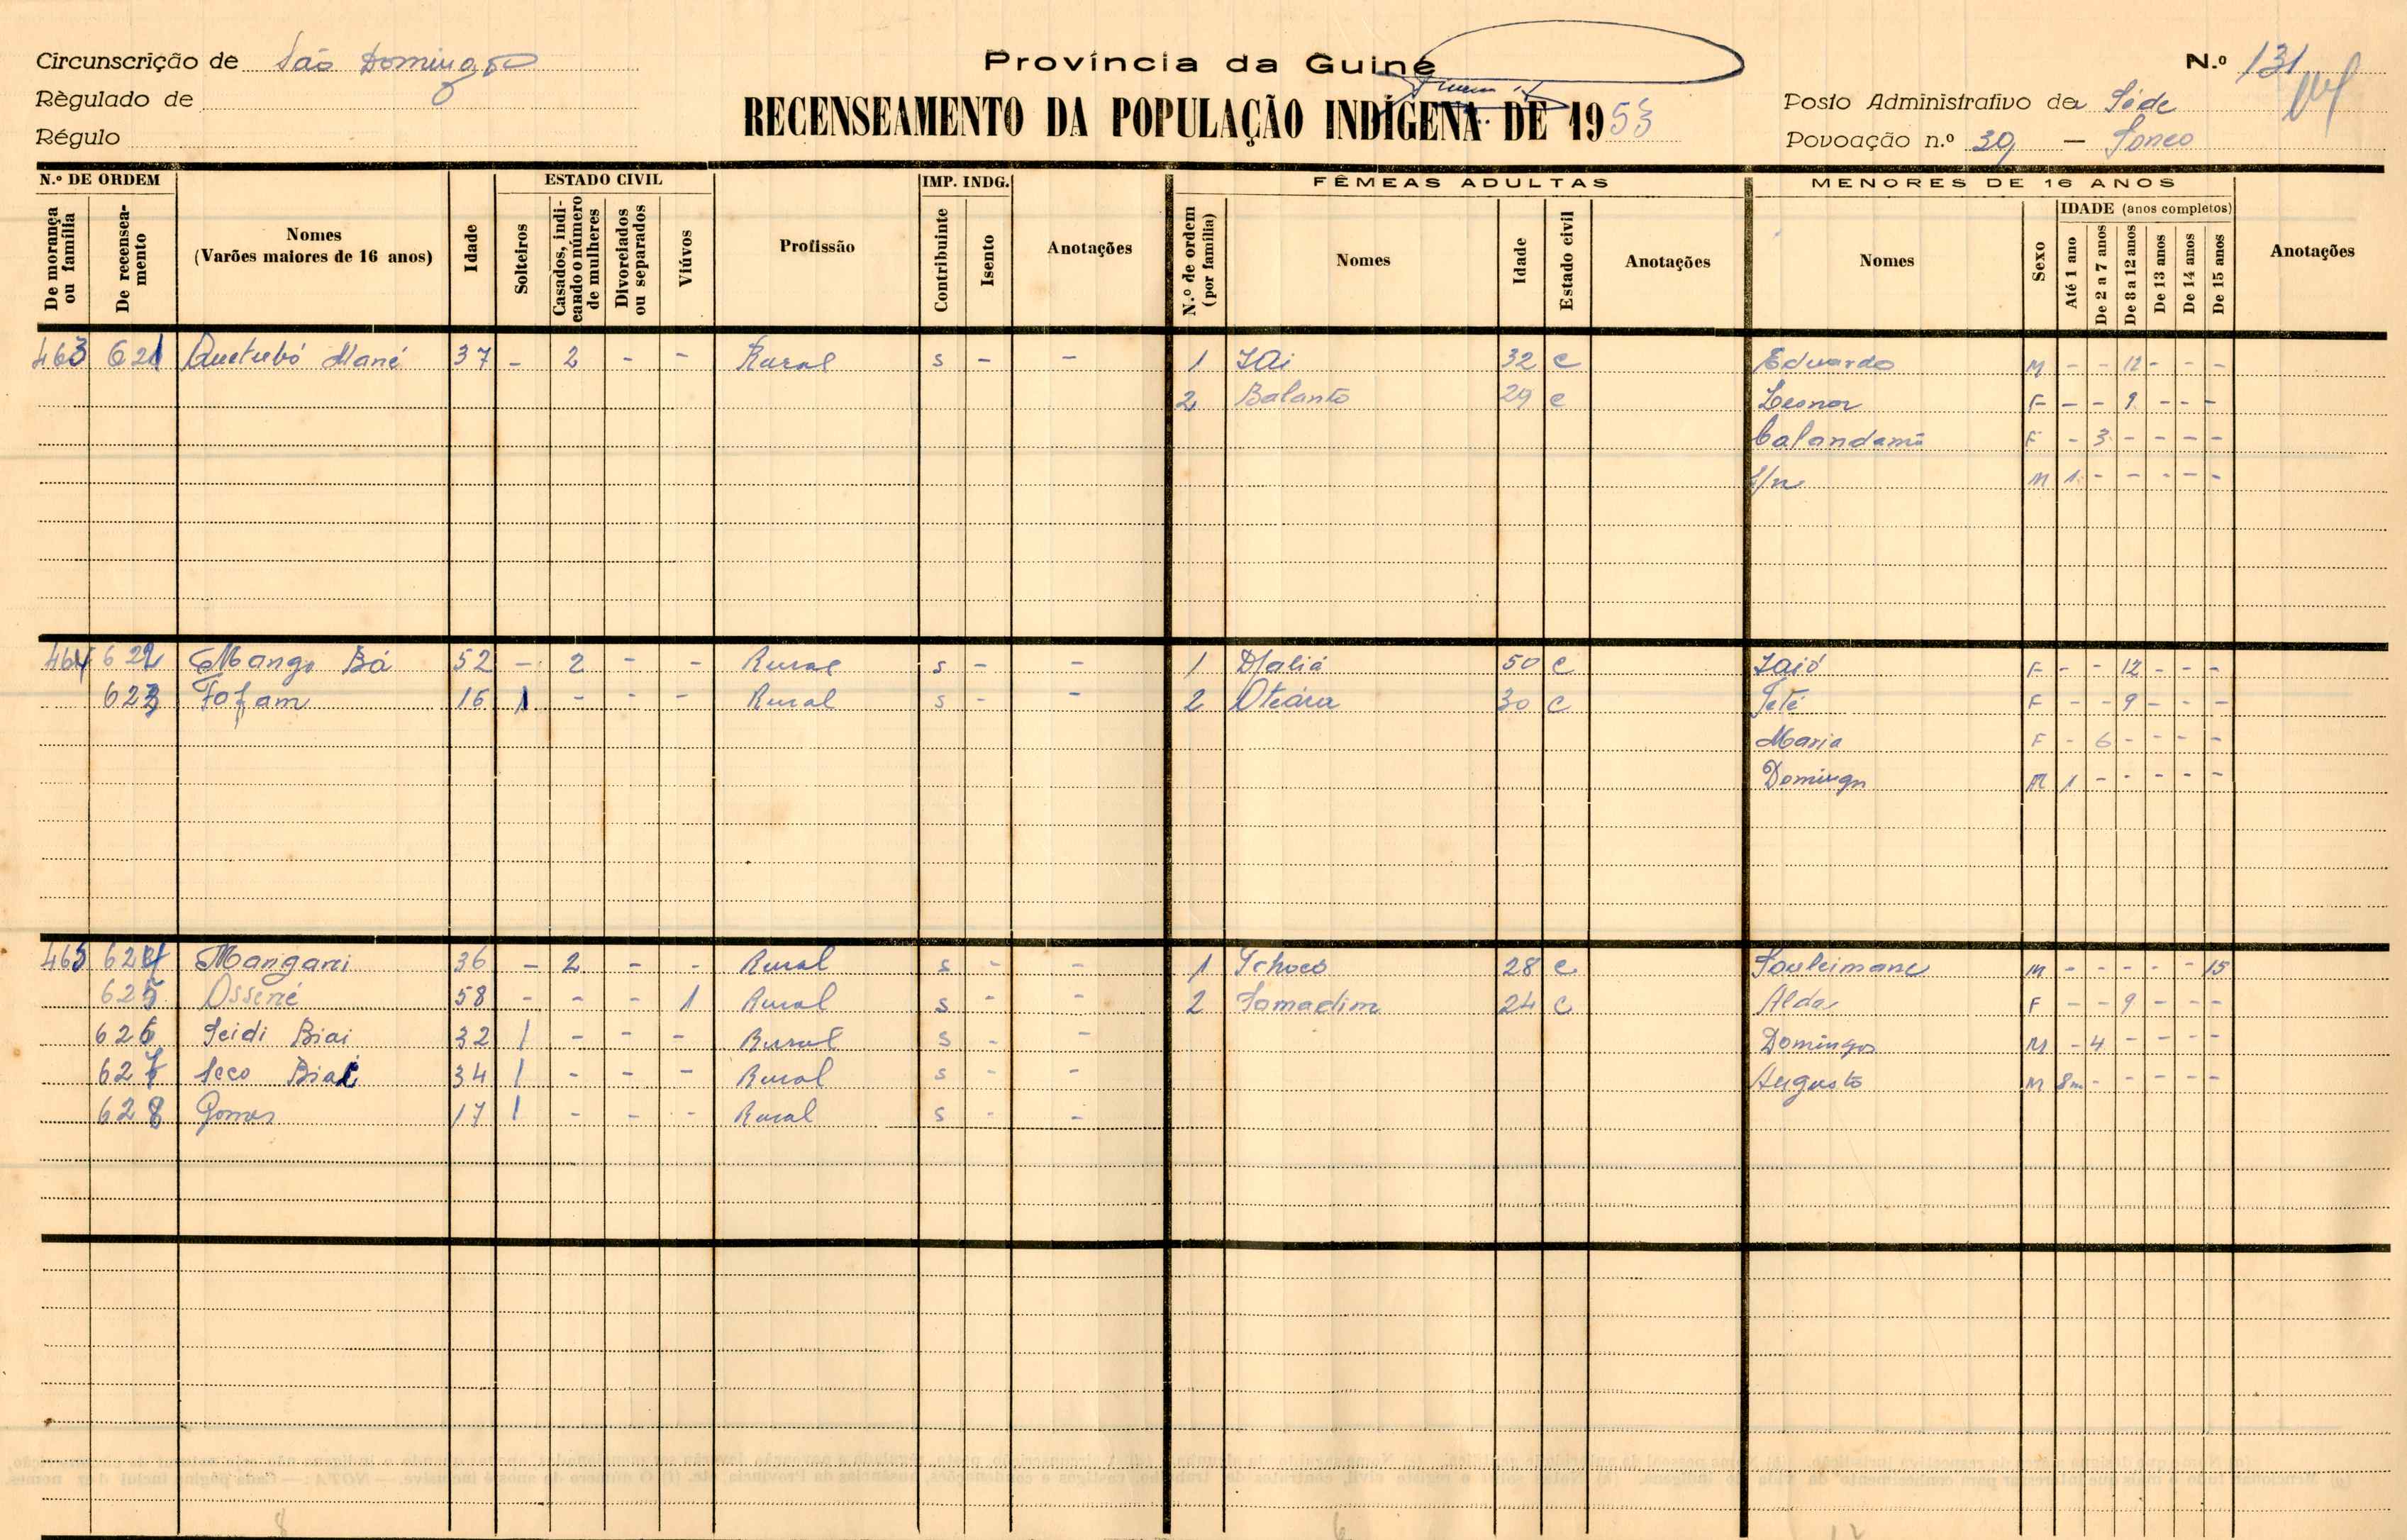 Circunscrição de São Domingos
Província da Guiné
N.º 131
Règulado de
RECENSEAMENTO DA POPULAÇÃO INDÍGENA DE 1953
Posto Administrativo de Séde
Régulo
Povoação n.º 39 —
N.º DE ORDEM
ESTADO CIVIL
IMP. INDG.
FÊMEAS ADULTAS
MENORES DE 16 ANOS
De morança ou família
De recenseamento
Nomes (Varões maiores de 16 anos)
Idade
Solteiros
Casados, indicando o número de mulheres
Divorciados ou separados
Viúvos
Profissão
Contribuinte
Isento
Anotações
N.º de ordem (por família)
Nomes
Idade
Estado civil
Anotações
Nomes
Sexo
IDADE (anos completos)
Até 1 ano
De 2 a 7 anos
De 8 a 12 anos
De 13 anos
De 14 anos
De 15 anos
Anotações
463 621 Quetubó Mané 37 - 2 - - Rural s - - 1 Jai 32 c Eduardo M - - 12 - - -
2 Balanto 29 c Leonor F - - 9 - - -
Calandamã F - 3 - - - -
S/n M 1 - - - - -
464 622 Mango Bá 52 - 2 - - Rural s - - 1 50 c Jaió F - - 12 - - -
623 Fofam 16 1 - - - Rural s - - 2 30 c Teté F - - 9 - - -
Maria F - 6 - - - -
Domingos M 1 - - - - -
465 624 Mangani 36 - 2 - - Rural s - - 1 Tchoco 28 c Souleimane M - - - - - 15
625 Ossené 58 - - - 1 Rural s - - 2 Samadim 24 c Alda F - - 9 - - -
626 Seidi Biai 32 1 - - - Rural s - - Domingos M - 4 - - - -
627 Seco Biai 34 1 - - - Rural s - - Augusto M 8m - - - - -
628 Gomes 17 1 - - - Rural s - -
8
6
12